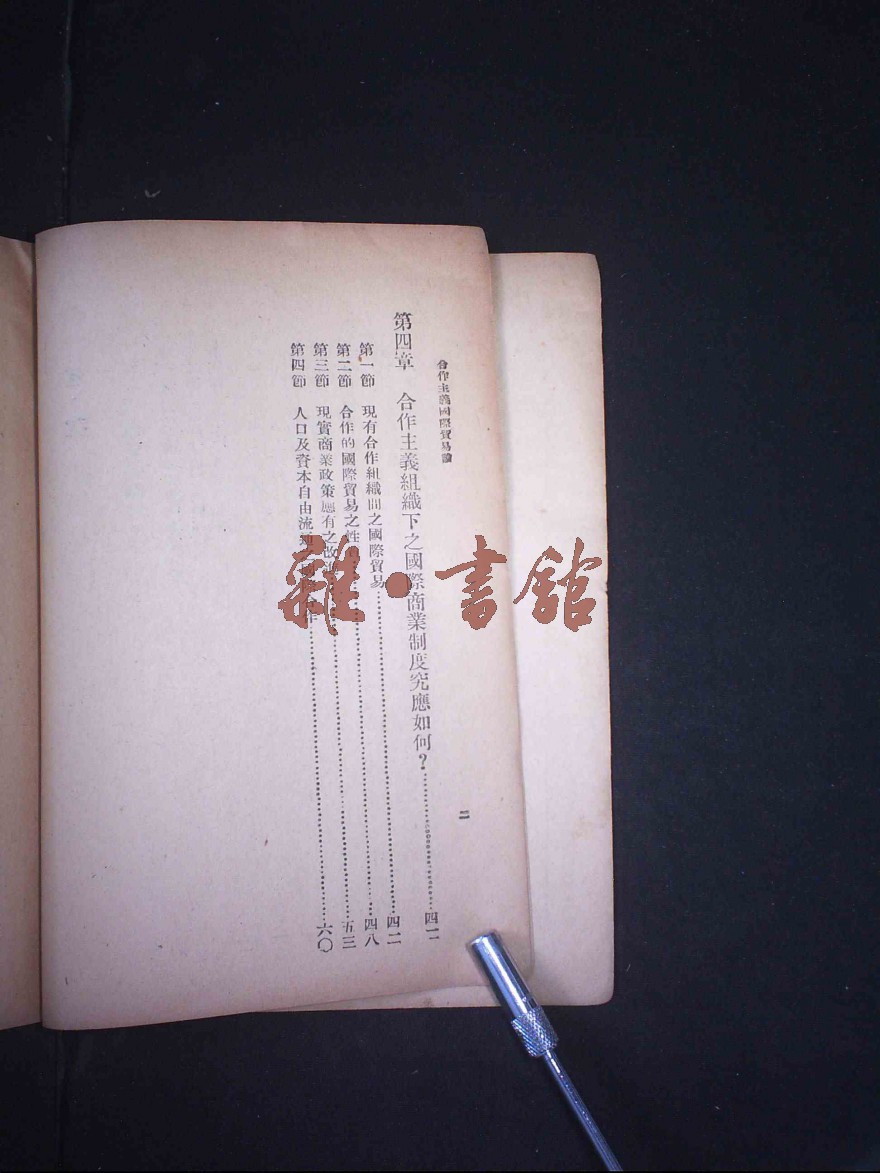 合作主義國際貿易論
二
第四章 合作主義組織下之國際商業制度究應如何？……四二
第一節 現有合作組織間之國際貿易……四二
第二節 合作的國際貿易之性……四八
第三節 現實商業政策應有之改……五三
第四節 人口及資本自由流……作……六〇
雜・書館